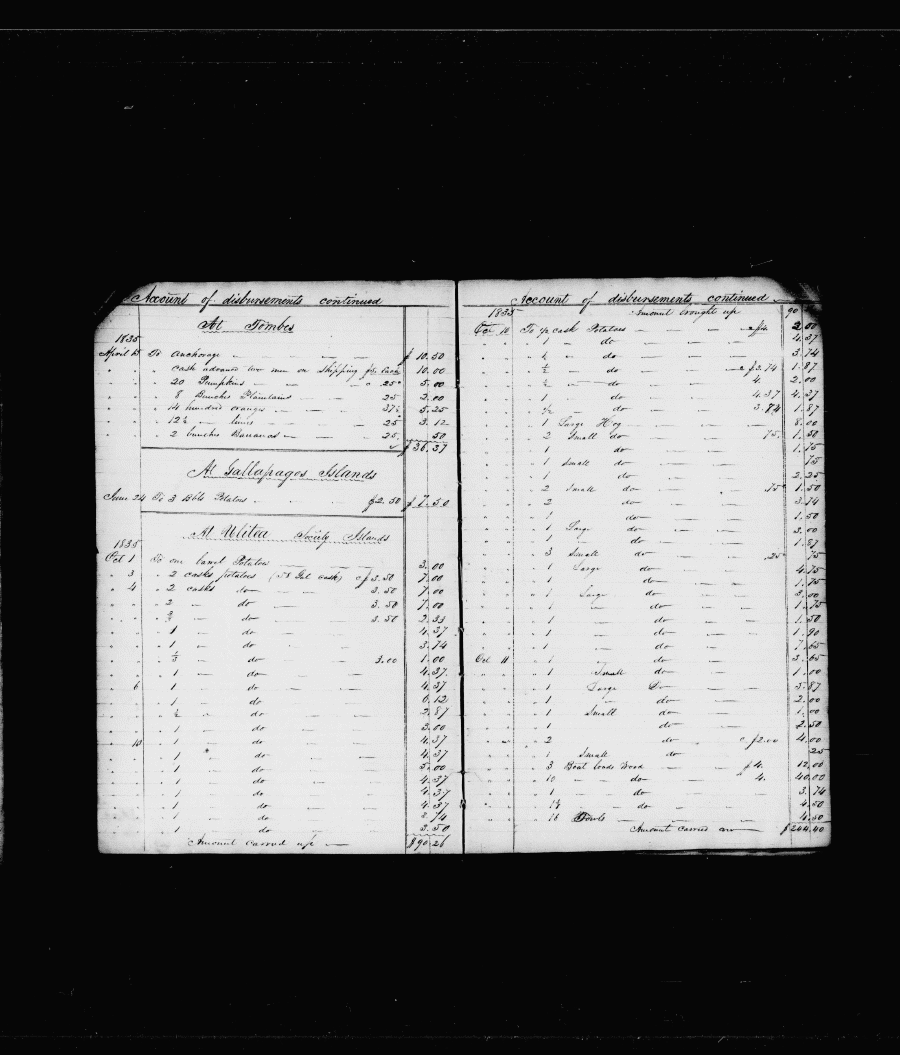 Account of disbursements continued
At Tombes
1835
April 15 To Anchorage $ 10.50
" " " Cash advanced two men on Shipping 10.00
" " " 20 Pumpkins " 25c 5.00
" " " 8 Bunches Plantains 25 2.00
" " " 14 hundred oranges 37½ 5.25
" " " 12½ " limes 25 3.12
" " " 2 bunches Bananas 25 50
$ 36.37
At Gallapagos Islands
June 24 To 3 Bbls Potatoes $2.50 $ 7.50
At Ulitea Society Islands
1835
Oct 1 To one barrel Potatoes 3.00
" 3 " 2 casks potatoes (58 Gal cask) @ $3.50 7.00
" 4 " 2 casks do 3.50 7.00
" " " 2 " do 3.50 7.00
" " " ⅔ " do 3.50 2.33
" " " 1 " do 4.37
" " " 1 " do 3.74
" " " ⅓ " do 3.00 1.00
" " " 1 " do 4.37
" 6 " 1 " do 4.37
" " " 1 " do 6.12
" " " " do 2.87
" " " 1 " do 3.00
" 10 " 1 " do 4.37
" " " 1 " do 4.37
" " " 1 " do 5.00
" " " 1 " do 4.37
" " " 1 " do 4.37
" " " 1 " do 4.37
" " " 1 " do 3.74
" " " 1 " do 3.50
Amount carried up $90.26
Account of disbursements continued
1835 Amount brought up 90
Oct 10 To ½ cask Potatoes 2.00
" " " 1 " do 4.37
" " " " do 3.74
" " " ½ " do $3.74 1.87
" " " ½ " do 4. 2.00
" " " 1 " do 4.37 4.37
" " " ½ " do 3.74 1.87
" " " 1 Large Hog 8.00
" " " 2 Small do 75 1.50
" " " 1 do 1.75
" " " 1 Small do 75
" " " 1 do 2.25
" " " 2 Small do 75c 1.50
" " " 2 do 3.74
" " " 1 do 1.50
" " " 1 Large do 3.00
" " " 1 do 1.87
" " " 3 Small do 25 75
" " " 1 Large do 4.75
" " " 1 do 1.75
" " " 1 Large do 3.00
" " " 1 " do 1.75
" " " 1 do 1.50
" " " 1 do 1.90
" " " 1 do 7.65
Oct 11 " 1 do 3.65
" " " 1 Small do 1.00
" " " 1 Large Do 3.87
" " " 1 " do 2.00
" " " 1 Small do 1.00
" " " 1 do 2.50
" " " 2 do @ $2.00 4.00
" " " 1 Small do 25
" " " 3 Boat loads Wood $4. 12.00
" " " 10 " do 4. 40.00
" " " 1 " do 3.74
" " " do 4.50
" " " 16 Fowls 4.50
Amount carried over $244.40